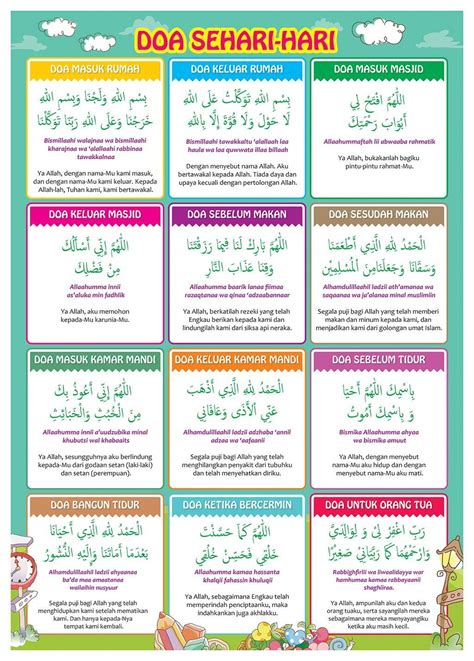 DOA SEHARI-HARI
DOA MASUK RUMAH
بِسْمِ اللهِ وَلَجْنَا وَبِسْمِ اللهِ
خَرَجْنَا وَعَلَى اللهِ رَبِّنَا تَوَكَّلْنَا
Bismillaahi walajnaa wa bismillaahi
kharajnaa wa 'alallaahi rabbinaa
tawakkalnaa
Ya Allah, dengan nama-Mu kami masuk,
dan dengan nama-Mu kami keluar. Kepada
Allah-lah, Tuhan kami, kami bertawakal.
DOA KELUAR RUMAH
بِسْمِ اللهِ تَوَكَّلْتُ عَلَى اللهِ
لَا حَوْلَ وَلَا قُوَّةَ إِلَّا بِاللهِ
Bismillaahi tawakkaltu 'alallaahi laa
haula wa laa quwwata illaa billaah
Dengan menyebut nama Allah. Aku
bertawakal kepada Allah. Tiada daya dan
upaya kecuali dengan pertolongan Allah.
DOA MASUK MASJID
اللَّهُمَّ افْتَحْ لِي
أَبْوَابَ رَحْمَتِكَ
Allaahummaftah lii abwaaba rahmatik
Ya Allah, bukakanlah bagiku
pintu-pintu rahmat-Mu.
DOA KELUAR MASJID
اللَّهُمَّ إِنِّي أَسْأَلُكَ
مِنْ فَضْلِكَ
Allaahumma innii
as'aluka min fadhlik
Ya Allah, aku memohon
kepada-Mu karunia-Mu.
DOA SEBELUM MAKAN
اللَّهُمَّ بَارِكْ لَنَا فِيمَا رَزَقْتَنَا
وَقِنَا عَذَابَ النَّارِ
Allaahumma baarik lanaa fiimaa
razaqtanaa wa qinaa 'adzaabannaar
Ya Allah, berkatilah rezeki yang telah
Engkau berikan kepada kami dan
lindungilah kami dari siksa api neraka.
DOA SESUDAH MAKAN
الْحَمْدُ لِلهِ الَّذِي أَطْعَمَنَا
وَسَقَانَا وَجَعَلَنَا مِنَ الْمُسْلِمِيْنَ
Alhamdulillaahil ladzii ath'amanaa wa
saqaanaa wa ja'alanaa minal muslimiin
Segala puji bagi Allah yang telah memberi
makan dan minum kepada kami, dan
menjadikan kami dari golongan umat Islam.
DOA MASUK KAMAR MANDI
اللَّهُمَّ إِنِّي أَعُوذُ بِكَ
مِنَ الْخُبُثِ وَالْخَبَائِثِ
Allaahumma innii a'uudzubika minal
khubutsi wal khabaaits
Ya Allah, sesungguhnya aku berlindung
kepada-Mu dari godaan setan (laki-laki)
dan setan (perempuan).
DOA KELUAR KAMAR MANDI
الْحَمْدُ لِلهِ الَّذِي أَذْهَبَ
عَنِّي الْأَذَى وَعَافَانِي
Alhamdulillaahil ladzii adzhaba 'annil
adzaa wa 'aafaanii
Segala puji bagi Allah yang telah
menghilangkan penyakit dari tubuhku
dan telah menyehatkan diriku.
DOA SEBELUM TIDUR
بِاسْمِكَ اللَّهُمَّ أَحْيَا
وَ بِاسْمِكَ أَمُوْتُ
Bismika Allaahumma ahyaa
wa bismika amuut
Ya Allah, dengan menyebut
nama-Mu aku hidup dan dengan
menyebut nama-Mu aku mati.
DOA BANGUN TIDUR
الْحَمْدُ لِلهِ الَّذِي أَحْيَانَا
بَعْدَمَا أَمَاتَنَا وَإِلَيْهِ النُّشُوْرُ
Alhamdulillaahil ladzii ahyaanaa
ba'da maa amaatanaa
wailaihin nusyuur
Segala puji bagi Allah yang telah
menghidupkan kami setelah mematikan
kami. Dan hanya kepada-Nya
tempat kami kembali.
DOA KETIKA BERCERMIN
اللَّهُمَّ كَمَا حَسَّنْتَ
خَلْقِي فَحَسِّنْ خُلُقِي
Allaahumma kamaa hassanta
khalqii fahassin khuluqii
Ya Allah, sebagaimana Engkau telah
memperindah penciptaanku, maka
indahkanlah juga akhlakku.
DOA UNTUK ORANG TUA
رَبِّ اغْفِرْ لِي وَ لِوَالِدَيَّ
وَارْحَمْهُمَا كَمَا رَبَّيَانِي صَغِيْرًا
Rabbighfirlii wa liwaalidayya war
hamhumaa kamaa rabbayaanii
shaghiiraa.
Ya Allah, ampunilah aku dan kedua
orang tuaku, serta kasihilah mereka,
sebagaimana mereka menyayangiku
ketika aku masih kecil.